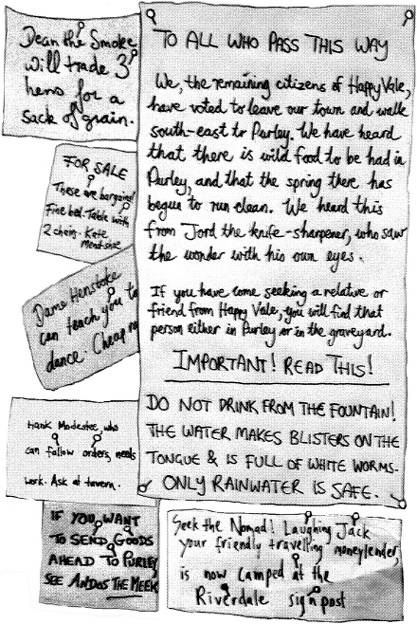 Dean the Smoke
will trade 3
hens for a
sack of grain.
FOR SALE
These are bargains!
Fine bed. Table with
2 chairs - Kate
Dame Henstoke
can teach you to
dance. Cheap
Hank Modestoe, who
can follow orders, needs
work. Ask at tavern.
IF YOU WANT
TO SEND GOODS
AHEAD TO PURLEY
SEE ANDOS THE MEEK
TO ALL WHO PASS THIS WAY
We, the remaining citizens of Happy Vale,
have voted to leave our town and walk
south-east to Purley. We have heard
that there is wild food to be had in
Purley, and that the spring there has
begun to run clean. We heard this
from Jord the knife-sharpener, who saw
the wonder with his own eyes.
If you have come seeking a relative or
friend from Happy Vale, you will find that
person either in Purley or in the graveyard.
IMPORTANT! READ THIS!
DO NOT DRINK FROM THE FOUNTAIN!
THE WATER MAKES BLISTERS ON THE
TONGUE & IS FULL OF WHITE WORMS.
ONLY RAINWATER IS SAFE.
Seek the Nomad! Laughing Jack
your friendly travelling moneylender,
is now camped at the
Riverdale signpost